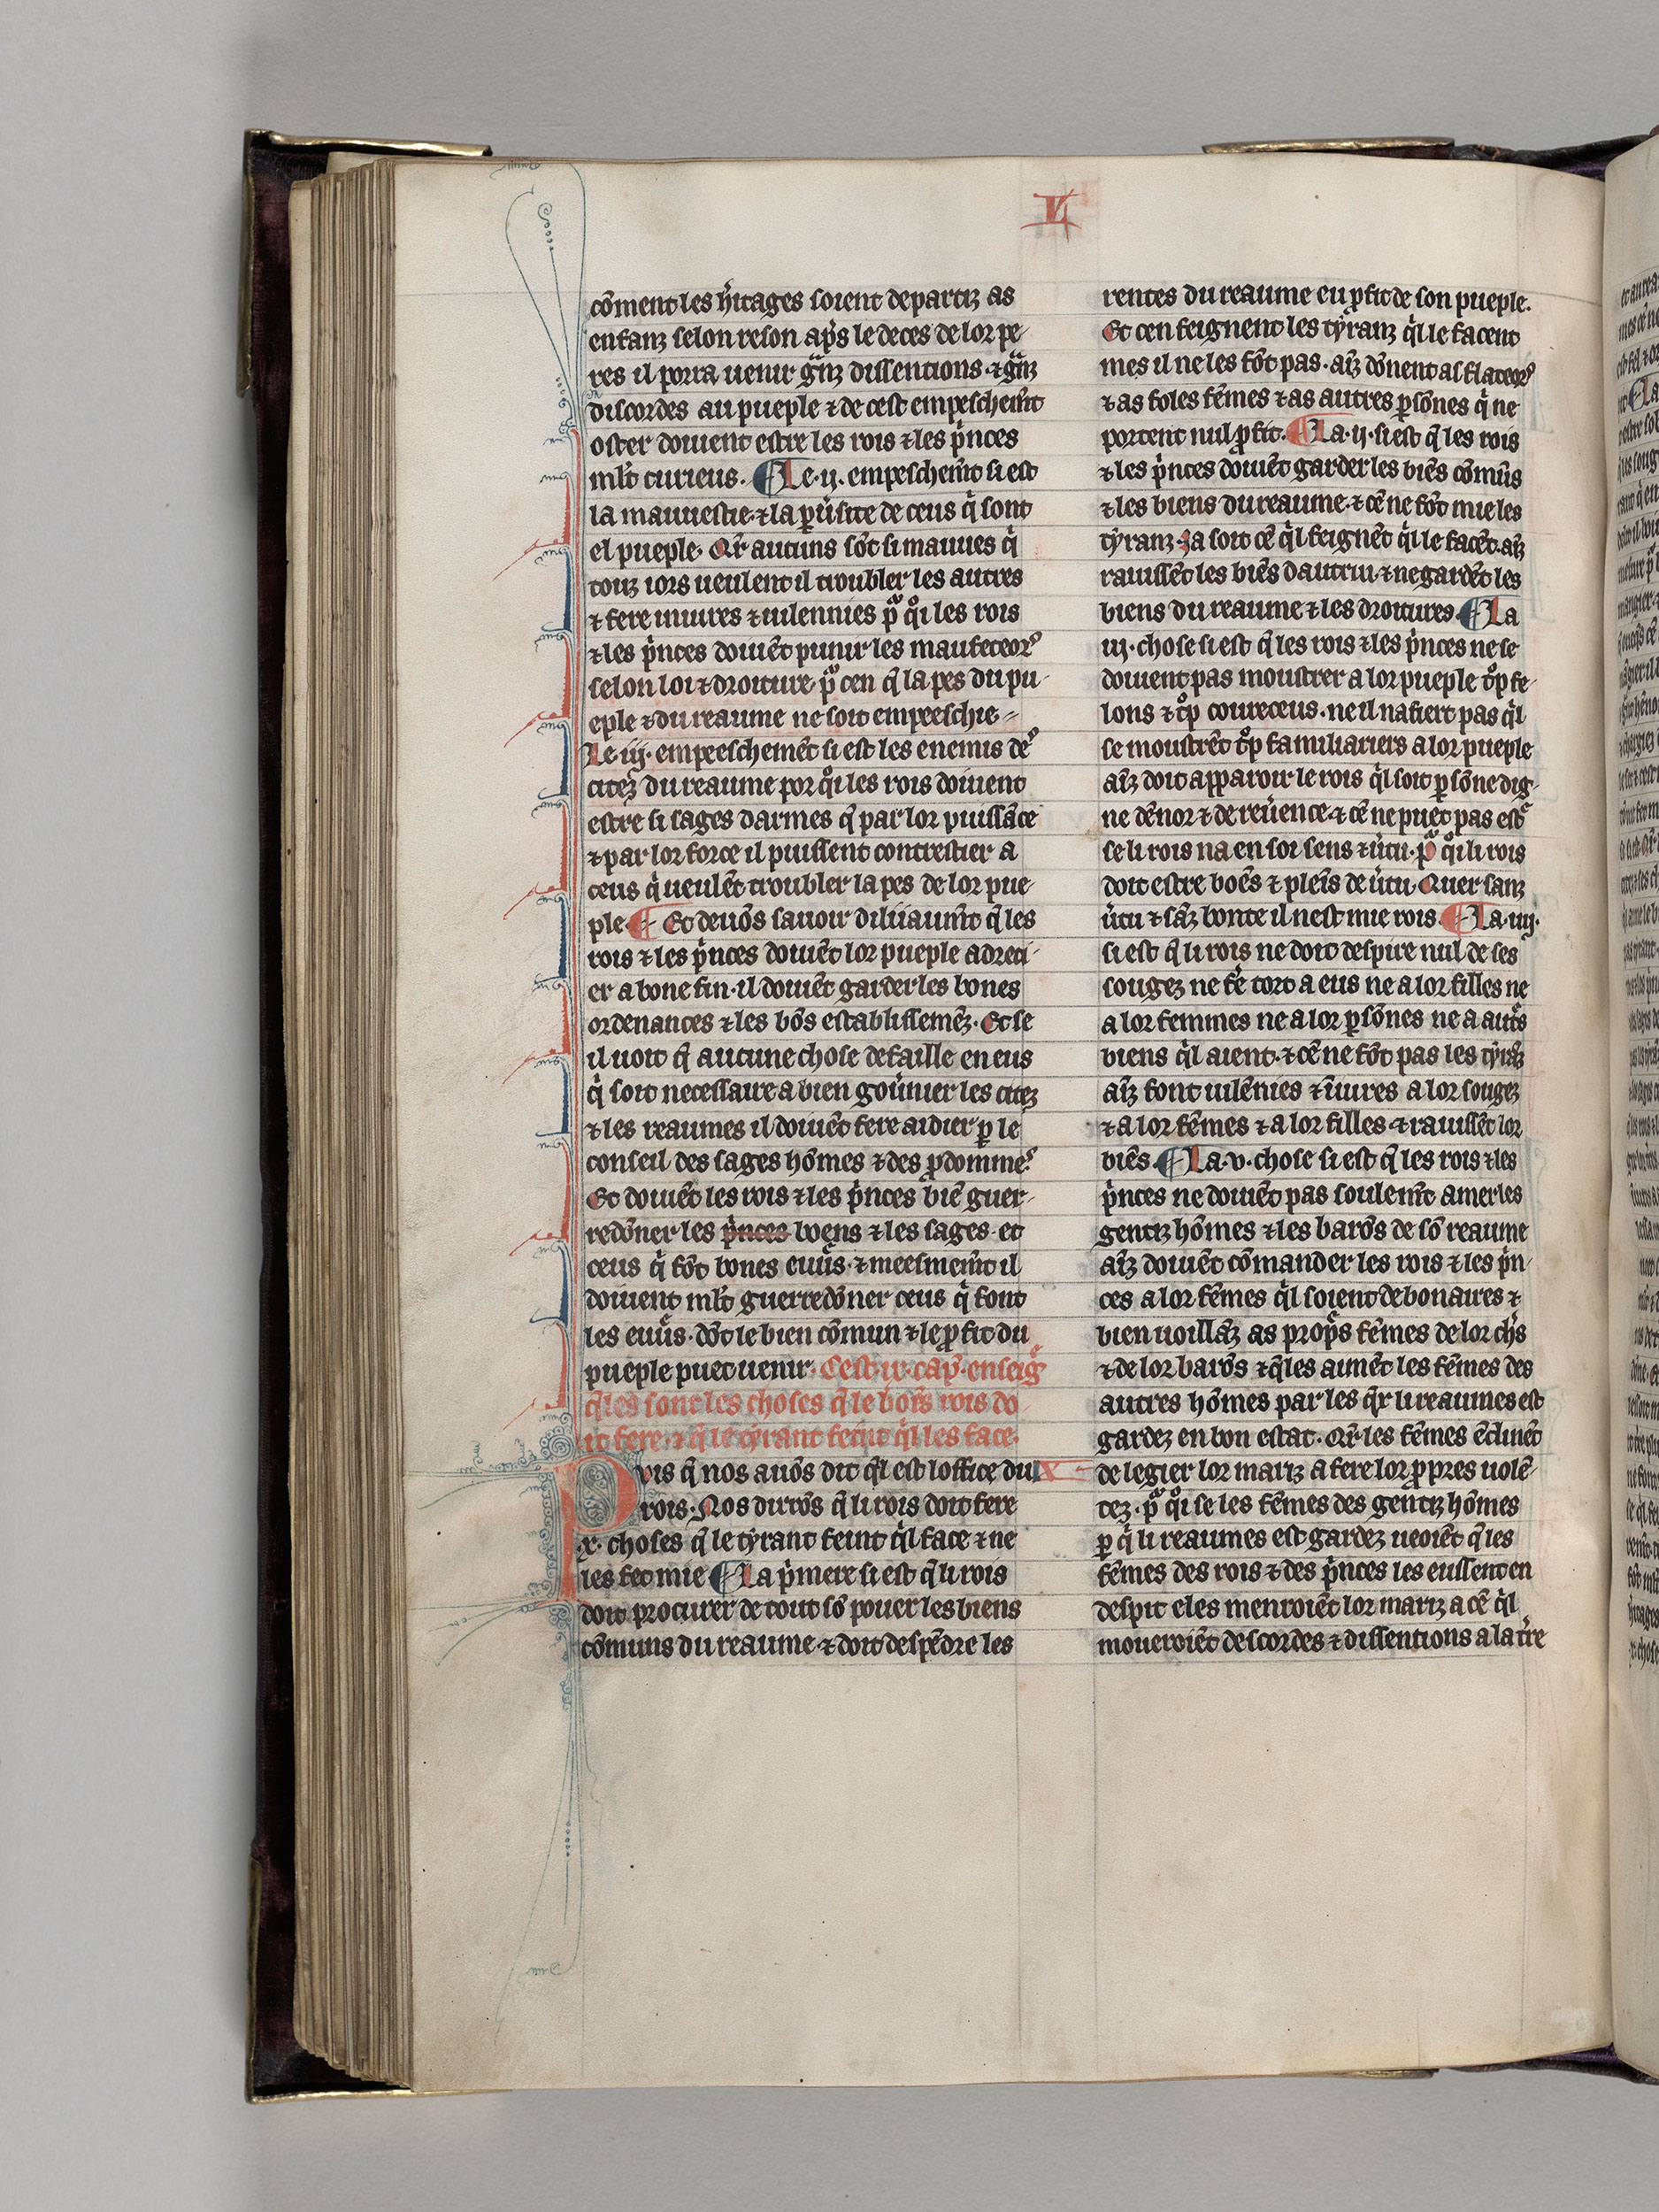 L
com̄ent les h̾itages soient departiz as
enfanz selon reson ap̾s le deces de lor pe-
res il porra uenir gͣnz dissentions ⁊ gͣnz
discordes au pueple ⁊ de cest empeschem̄t
oster doiuent estre les rois ⁊ les pͥnces
ml̄t curieus. ¶ Le .ij. empeschem̄t si est
la mauuestie ⁊ la ꝑu̾site de ceus qͥ sont
el pueple. Qr̄ aucuns sōt si mauues qͥ
touz iors ueulent il troubler les autres
⁊ fere iniures ⁊ uilennies pͬ qͦi les rois
⁊ les pͥnces doiuēt punir les maufeteorꝰ
selon loi ⁊ droiture pͬ cen q̄ la pes du pu-
eple ⁊ du reaume ne soit empeeschie
Le .iij. empeeschemēt si est les enemis deꝰ
citez du reaume por qͦi les rois doiuent
estre si sages darmes q̄ par lor puissāce
⁊ par lor force il puissent contrestier a
ceus qͥ ueulēt troubler la pes de lor pue-
ple. ¶ Et deuōs sauoir diliiaum̄t q̄ les
rois ⁊ les pͥnces doiuēt lor pueple adreci-
er a bone fin. il doiuēt garder les bones
ordenances ⁊ les bōs establissemēz. Et se
il uoit q̄ aucune chose defaille en eus
qͥ soit necessaire a bien gou̾nier les citez
⁊ les reaumes il doiuēt fere aidier ꝑ le
conseil des sages hōmes ⁊ des ꝓdommeꝰ
Et doiuēt les rois ⁊ les pͥnces biē guer-
redōner les pͥnces boens ⁊ les sages. et
ceus qͥ fōt bones euu̾s. ⁊ meesmem̄t il
doiuent ml̄t guerredōner ceus qͥ font
les euu̾s. dōt le bien cōmun ⁊ le ꝓfit du
pueple puet uenir. Cest .ix. cap̄. enseig̾
q̄les sont les choses q̄ le boēs rois do-
it fere ⁊ q̄ le tyrant feint qͥl les face.
Puis q̄ nos auōs dit q̄l est loffice du IX
rois. Nos dirōs q̄ li rois doit fere
.x. choses q̄ le tyrant feint qͥl face ⁊ ne
les fet mie ¶ La pͥmere si est q̄ li rois
doit procurer de tout sō pouer les biens
cōmuns du reaume ⁊ doit despēdre les
rentes du reaume eu ꝓfit de son pueple.
Et cen feignent les tyranz qͥl le facent
mes il ne les fōt pas. aīz dōnent as flateorꝰ
⁊ as foles fēmes ⁊ as autres ꝑsōnes qͥ ne
portent nul ꝓfit. ¶ La .ij. si est q̄ les rois
⁊ les pͥnces doiuēt garder les biēs cōmūs
⁊ les biens du reaume. ⁊ cē ne fōt mie les
tyranz. Ja soit cē qͥl feignēt qͥl le facēt. aīz
rauissēt les biēs dautrui ⁊ ne gardēt les
biens du reaume ⁊ les droitures. ¶ La
iij. chose si est q̄ les rois ⁊ les pͥnces ne se
doiuent pas moustrer a lor pueple tͦp fe-
lons ⁊ tͦp coureceus. ne il nafiert pas qͥl
se moustrēt tͦp familiariers a lor pueple
aīz doit apparoir le rois qͥl soit ꝑsōne dig-
ne dēnor ⁊ de reu̾ence. ⁊ cē ne puet pas est̾
se li rois na en soi sens ⁊ u̾tu. pͬ qͦi li rois
doit estre boēs ⁊ pleīs de u̾tu. Quer sanz
u̾tu ⁊ sāz bonte il nest mie rois. ¶ La .iiij.
si est q̄ li rois ne doit despire nul de ses
sougez ne fē tort a eus ne a lor filles ne
a lor femmes ne a lor ꝑsōnes ne a aut̾s
biens qͥl aient. ⁊ cē ne fōt pas les tyrāz
aīz font uilēnies ⁊ īiures a lor sougez
⁊ a lor fēmes ⁊ a lor filles ⁊ rauissēt lor
biēs. ¶ La .v. chose si est q̄ les rois ⁊ les
pͥnces ne doiuēt pas soulem̄t amer les
gentiz hōmes ⁊ les barōs de sō reaume
aīz doiuēt cōmander les rois ⁊ les pͥn-
ces a lor fēmes qͥl soient debonaires ⁊
bien uoillāz as prop̾s fēmes de lor ch̾s
⁊ de lor barōs ⁊ q̄les aimēt les fēmes des
autres hōmes par les qͥx li reaumes est
gardez en bon estat. Qr̄ les fēmes ēclinēt
de legier lor mariz a fere lor ꝓpres uolē-
tez. pͬ qͦi se les fēmes des gentiz hōmes
ꝑ qͥ li reaumes est gardez ueoiēt q̄ les
fēmes des rois ⁊ des pͥnces les eussent en
despit eles menroiēt lor mariz a cē qͥl
moueroiēt descordes ⁊ dissentions a la tr̄e